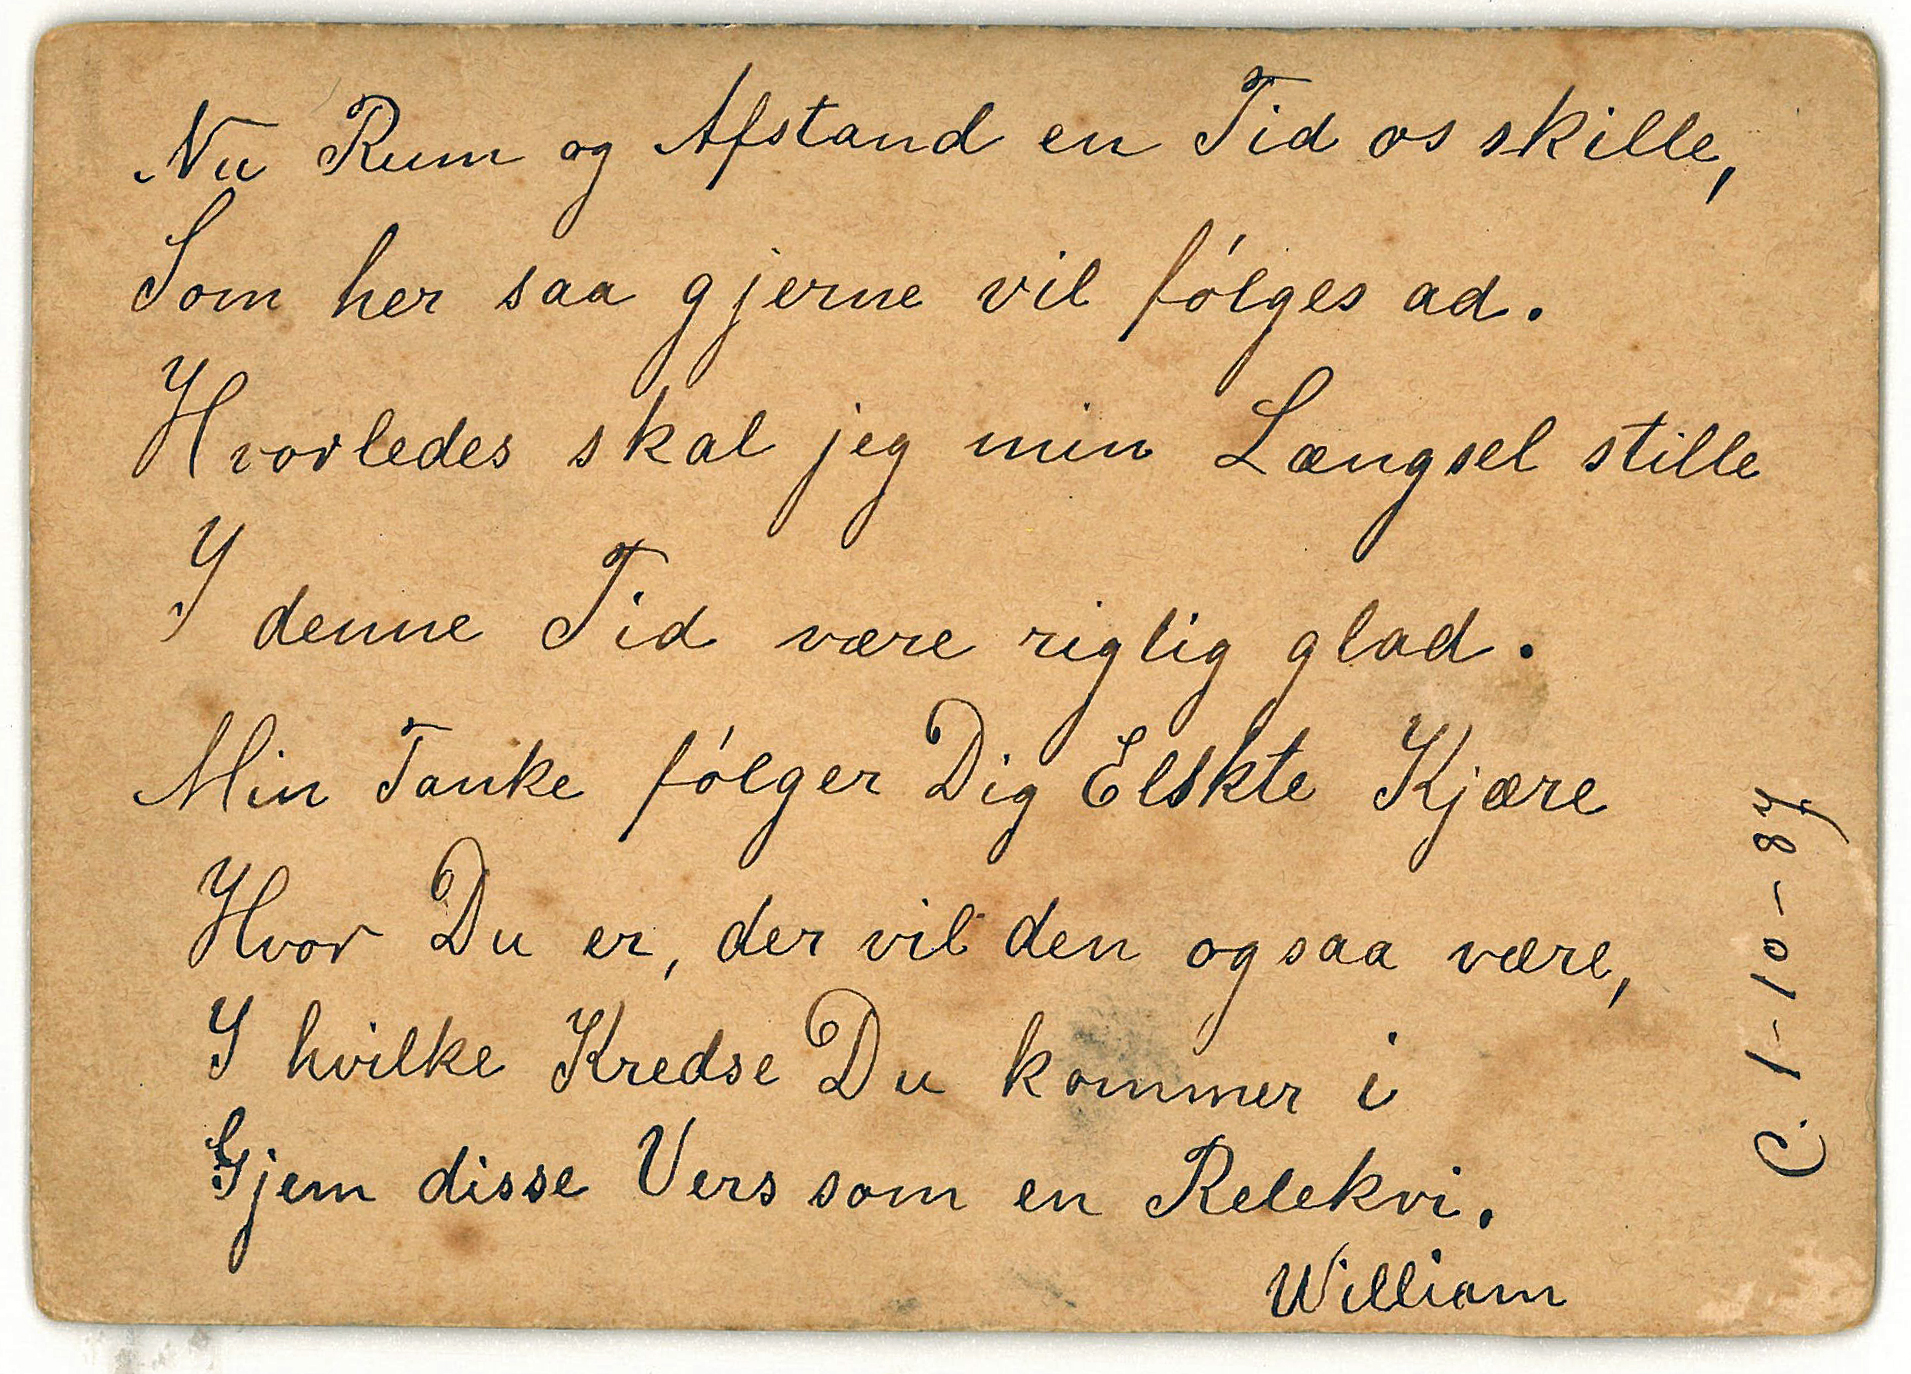 Nu Rum og Afstand en Tid os skille,
Som her saa gjerne vil følges ad.
Hvorledes skal jeg min Længsel stille
I denne Tid være rigtig glad.
Min Tanke følger Dig Elskte Kjære
Hvor Du er, der vil den ogsaa være,
I hvilke Kredse Du kommer i
Gjem disse Vers som en Relekvi.
William
C. 1-10-87